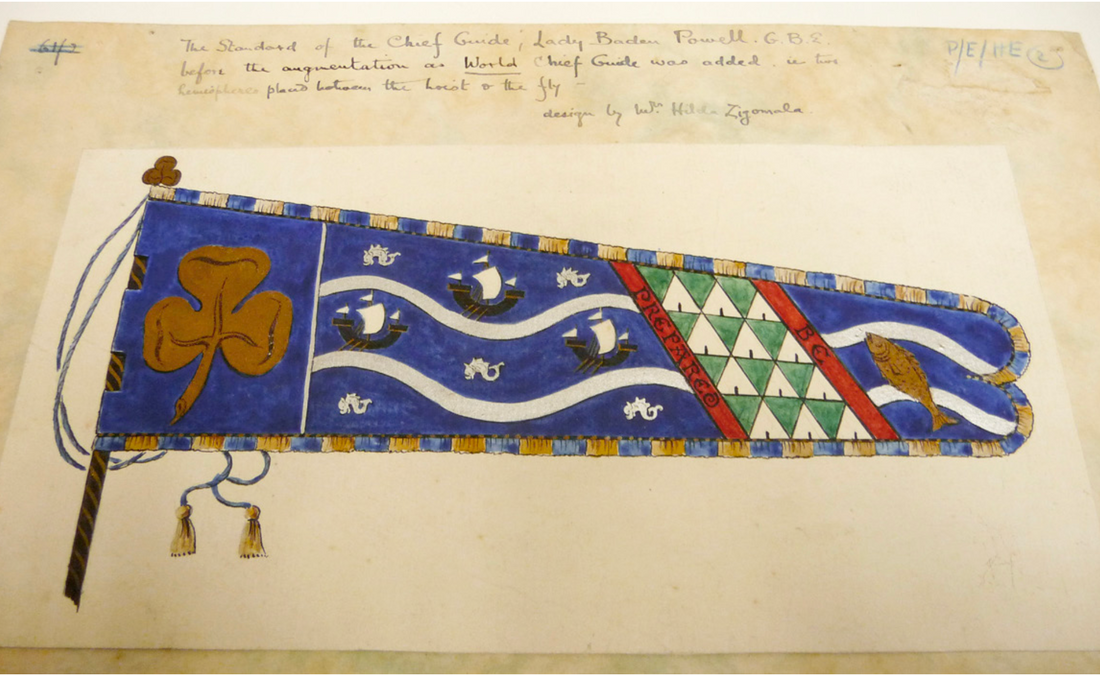 61/2
P/E/HE(2)
The Standard of the Chief Guide, Lady Baden Powell. G.B.E.
before the augmentation as World Chief Guide was added. in two
hemispheres placed between the hoist & the fly -
design by Mrs Hilda Zigomala.
BE
PREPARED